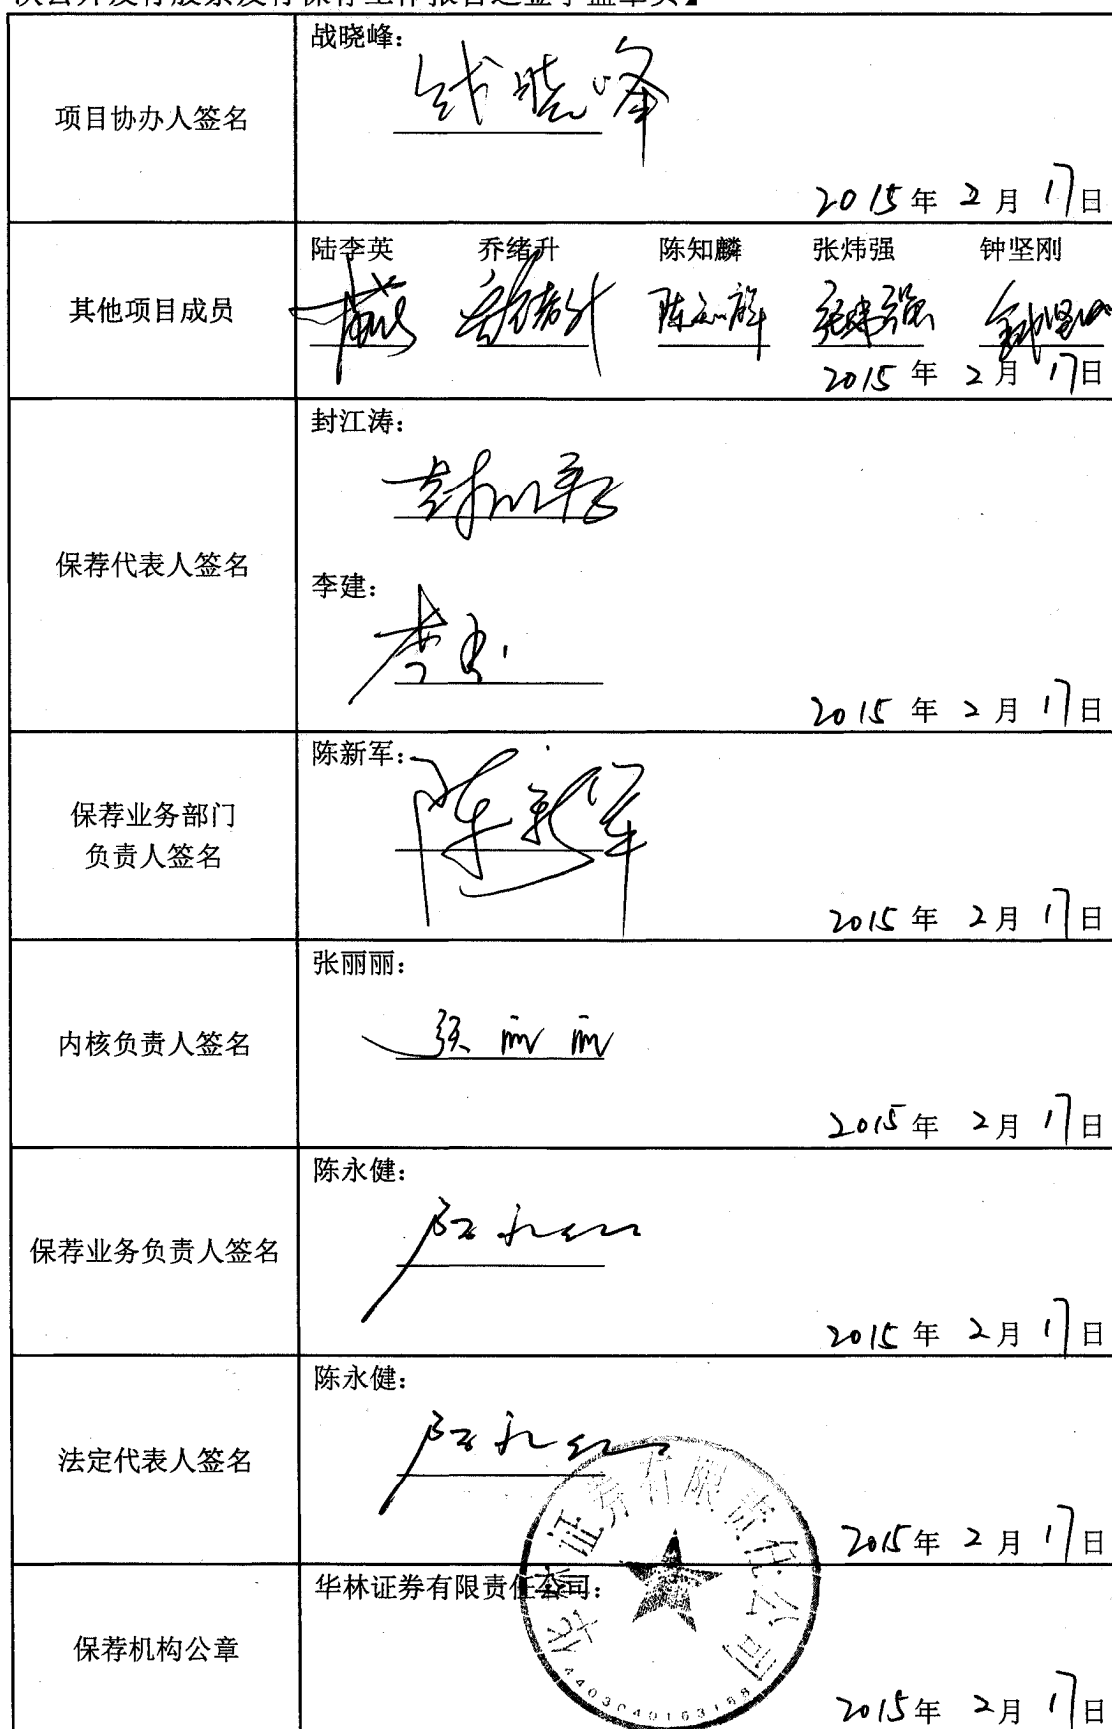 次公开发行股票发行保荐工作报告之签字盖章页】
项目协办人签名
战晓峰：
战晓峰
2015年 2月 17日
其他项目成员
陆李英 乔绪升 陈知麟 张炜强 钟坚刚
2015年 2月 17日
保荐代表人签名
封江涛：
李建：
2015年 2月 17日
保荐业务部门
负责人签名
陈新军：
陈新军
2015年 2月 17日
内核负责人签名
张丽丽：
张丽丽
2015年 2月 17日
保荐业务负责人签名
陈永健：
2015年 2月 17日
法定代表人签名
陈永健：
2015年 2月 17日
保荐机构公章
华林证券有限责任公司：
华林证券有限责任公司
2015年 2月 17日